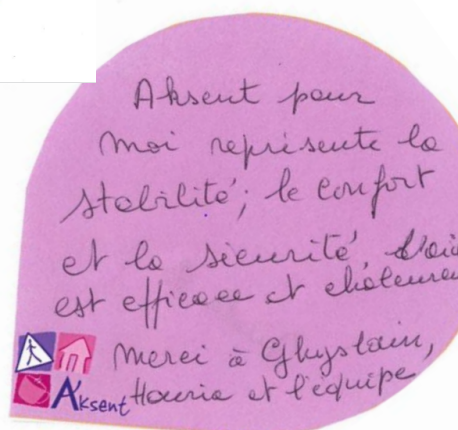 Aksent pour
moi représente la
stabilité; le confort
et la sécurité, L'aid
est efficace et chaleureu
merci à Ghyslain,
Houria et l'équipe
A'ksent